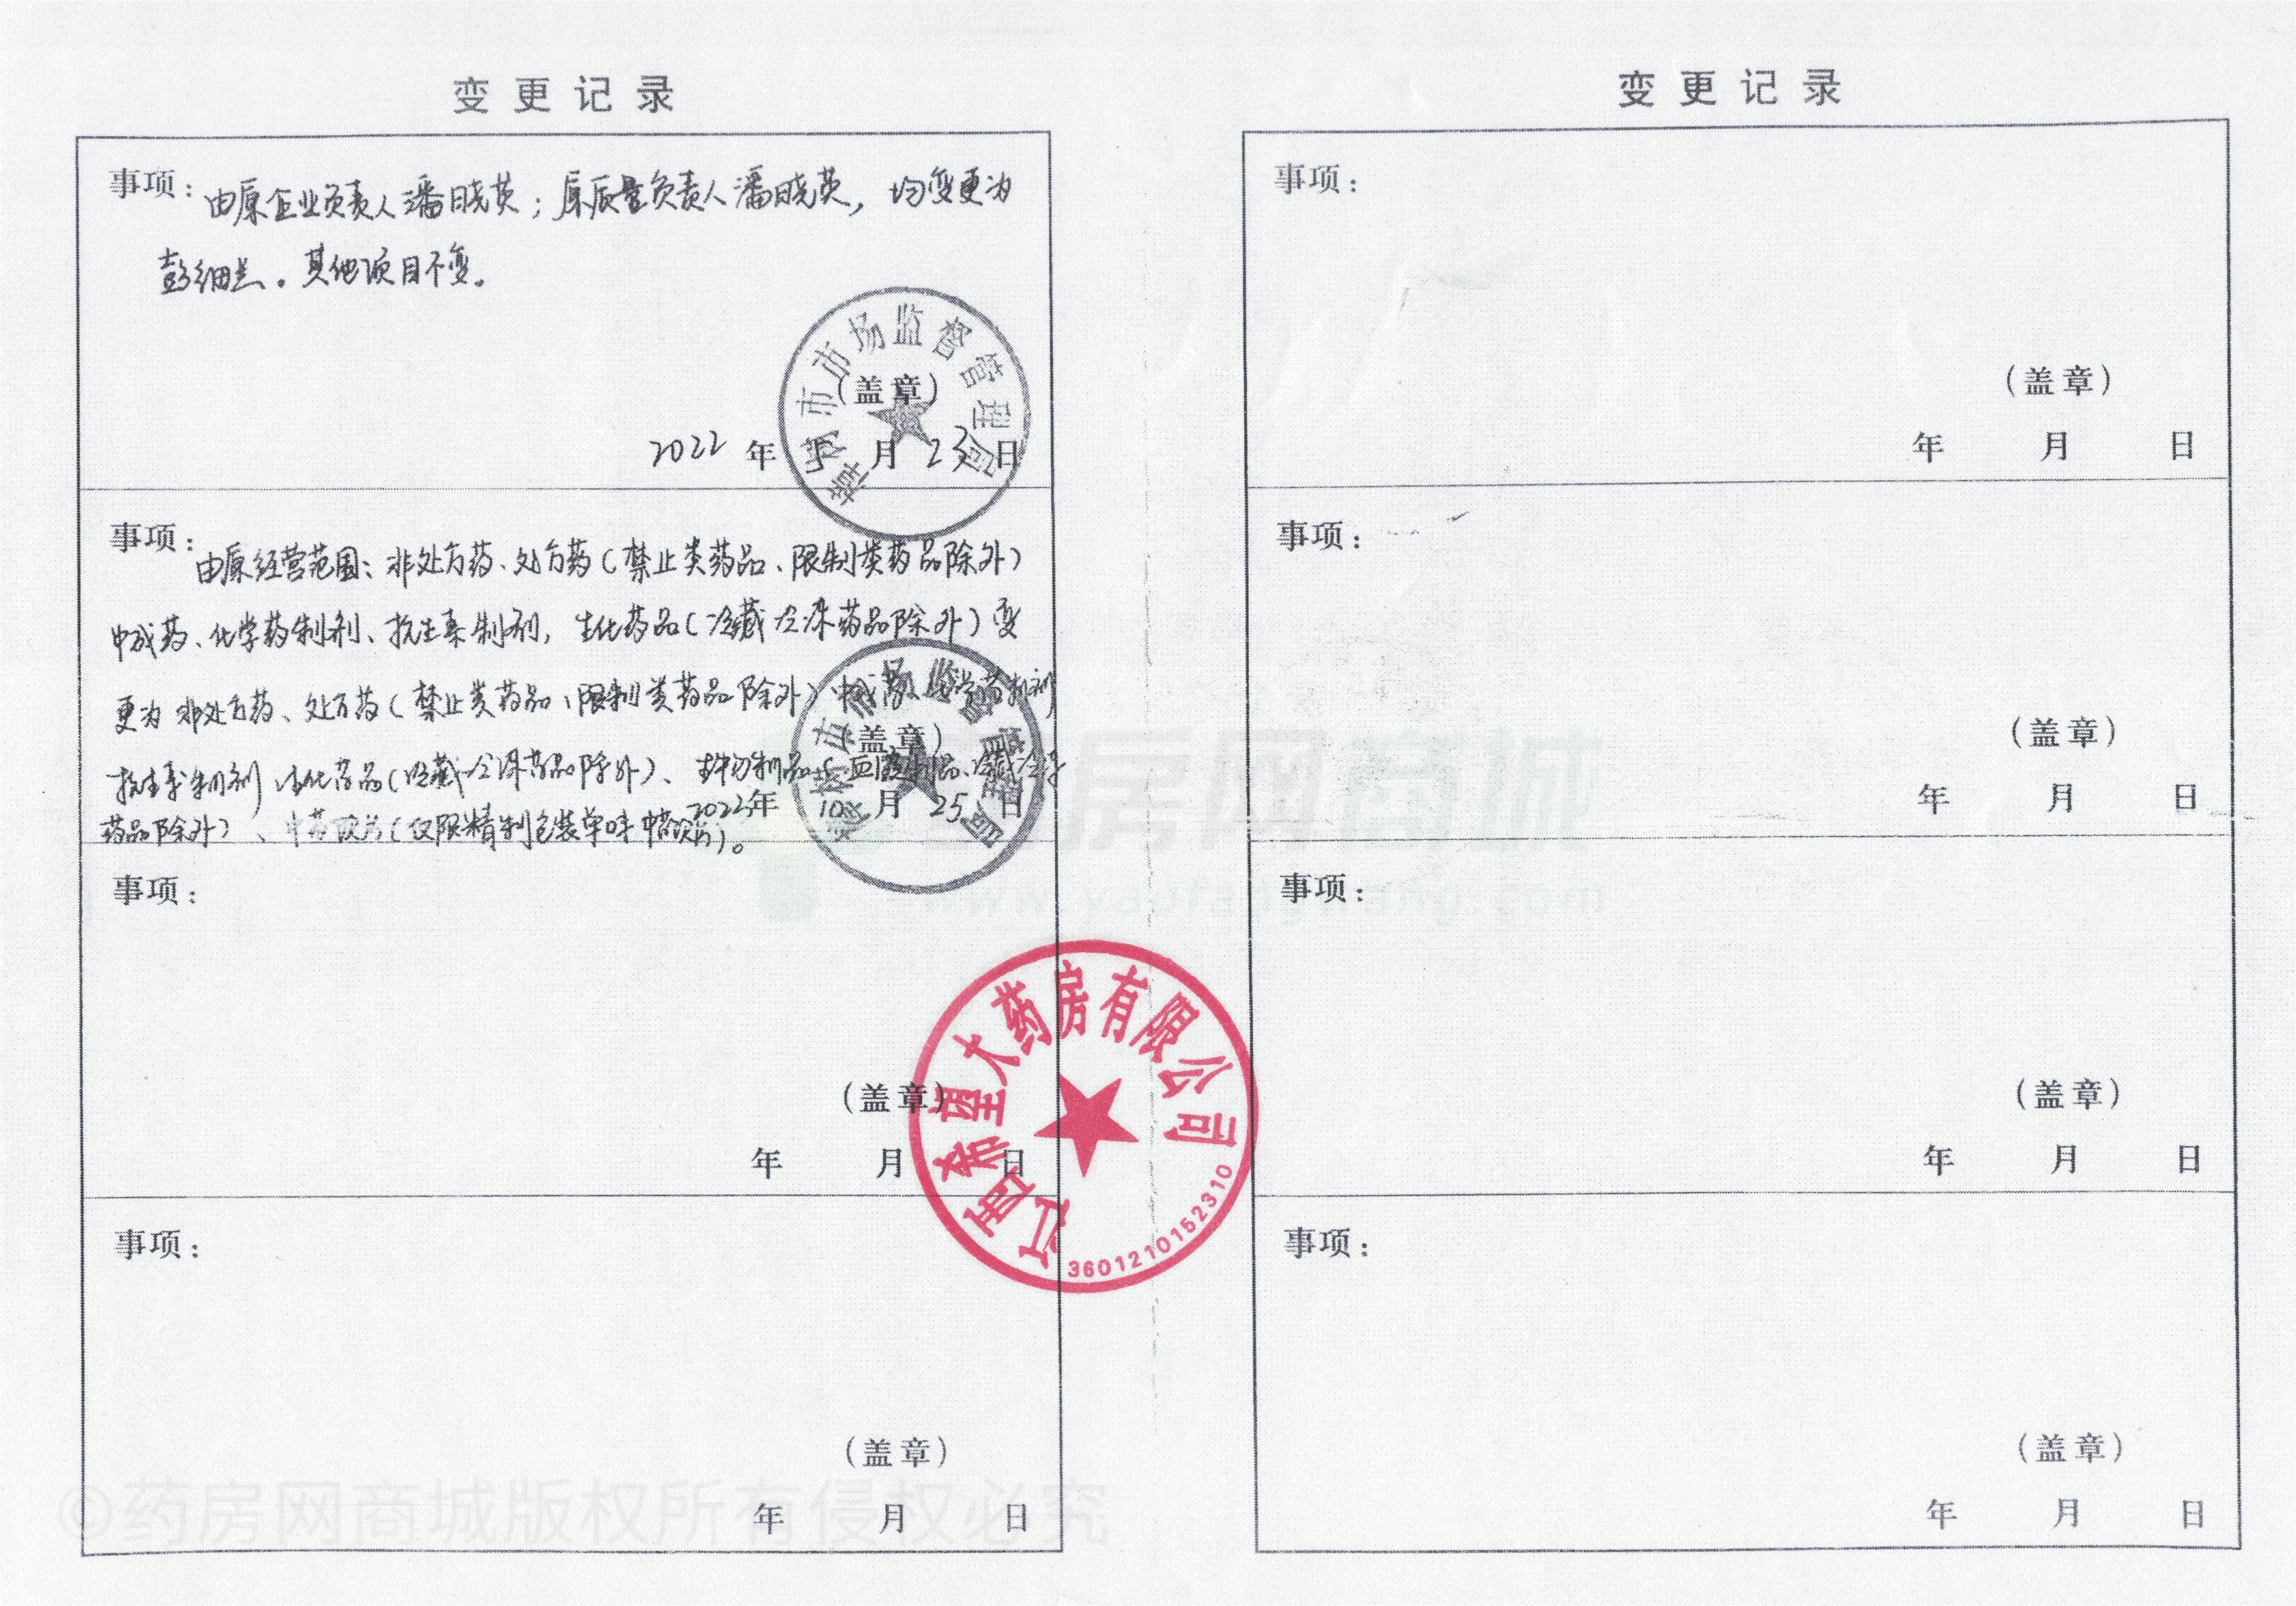 变更记录
事项：由原企业负责人潘晓英；原质量负责人潘晓英，均变更为
彭细兰。其他项目不变。
樟树市市场监督管理局
（盖章）
2022年5月23日
事项：由原经营范围：非处方药、处方药（禁止类药品、限制类药品除外）
中成药、化学药制剂、抗生素制剂，生化药品（冷藏冷冻药品除外）变
更为非处方药、处方药（禁止类药品、限制类药品除外）中成药、化学药制剂
抗生素制剂 生化药品（冷藏冷冻药品除外）、生物制品（血液制品、冷藏冷冻
药品除外）、中药饮片（仅限精制包装单味中药饮片）。
（盖章）
2022年10月25日
事项：
（盖章）
年 月 日
事项：
（盖章）
年 月 日
江西帝瑆大药房有限公司
3601210152310
变更记录
事项：
（盖章）
年 月 日
事项：
（盖章）
年 月 日
事项：
（盖章）
年 月 日
事项：
（盖章）
年 月 日
药房网商城
www.yaofangwang.com
©药房网商城版权所有侵权必究